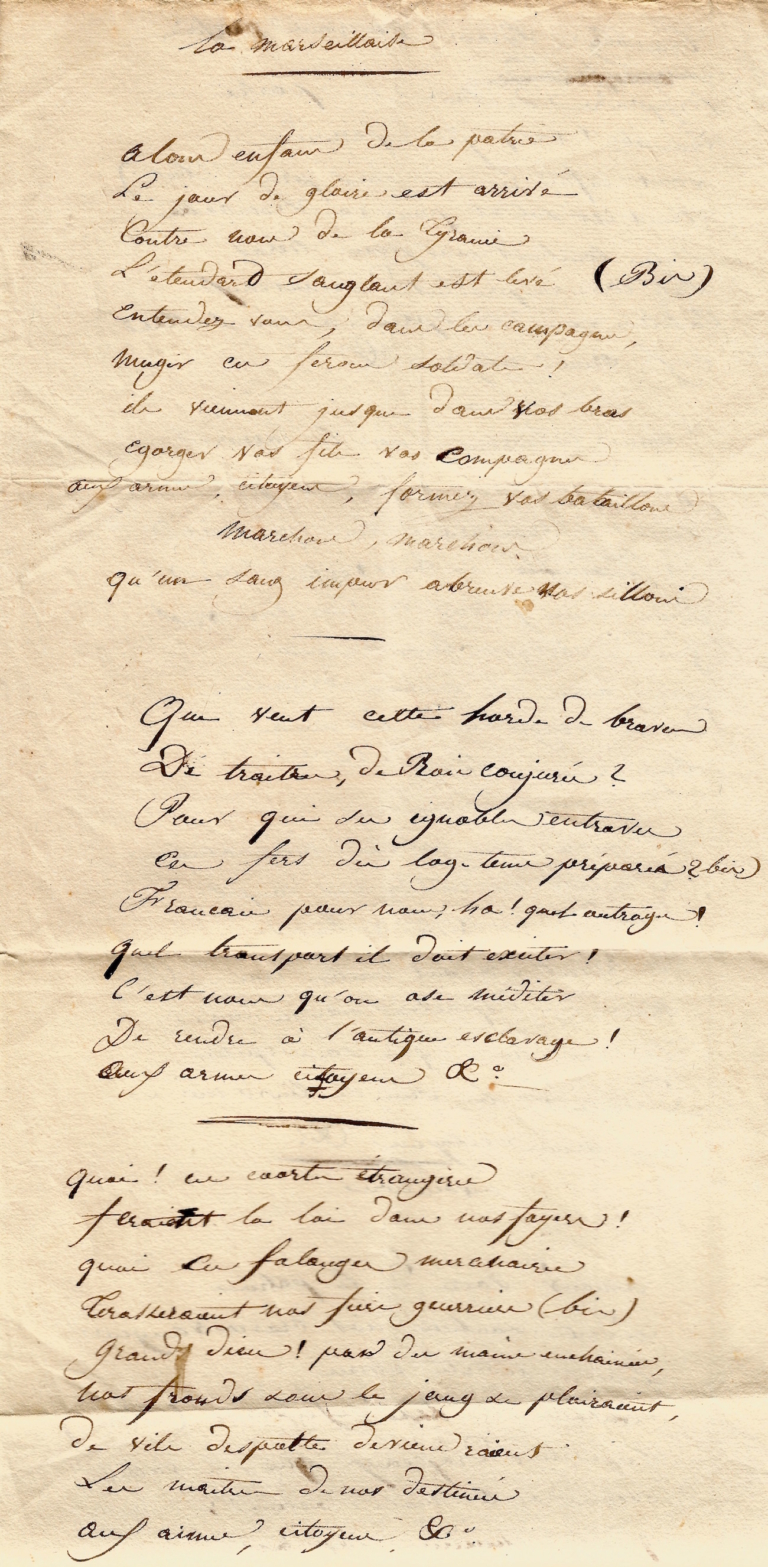 la marseillaise
alons enfans de la patrie
Le jour de gloire est arrivé
Contre nous de la Tyranie
L'étendard sanglant est levé (Bis)
entendez vous, dans les campagnes,
mugir ces feroces soldats !
ils viennent jusque dans vos bras
egorger vos fils vos compagnes
aux armes, citoyens, formez vos bataillons
marchons, marchons.
qu'un sang impur abreuve nos sillons
Que veut cette horde de braves
De traitres, de Rois conjurés ?
Pour qui ces ignobles entraves
ces fers dès log-tems préparés ? bis)
Francais pour nous, ha ! quel outrage !
quel transport il doit exciter !
C'est nous qu'on ose méditer
De rendre à l'antique esclavage !
aux armes citoyens &a
quoi ! ces coortes étrangères
feraient la loi dans nos foyers !
quoi ces falanges mercenaires
Terasseraient nos fiers guerriers (bis)
grands dieu ! par des mains enchainées,
nos fronds sous le joug se ploiraient,
de vils despotte deviendraient
Les maitres de nos destinées
aux armes, citoyens, &a